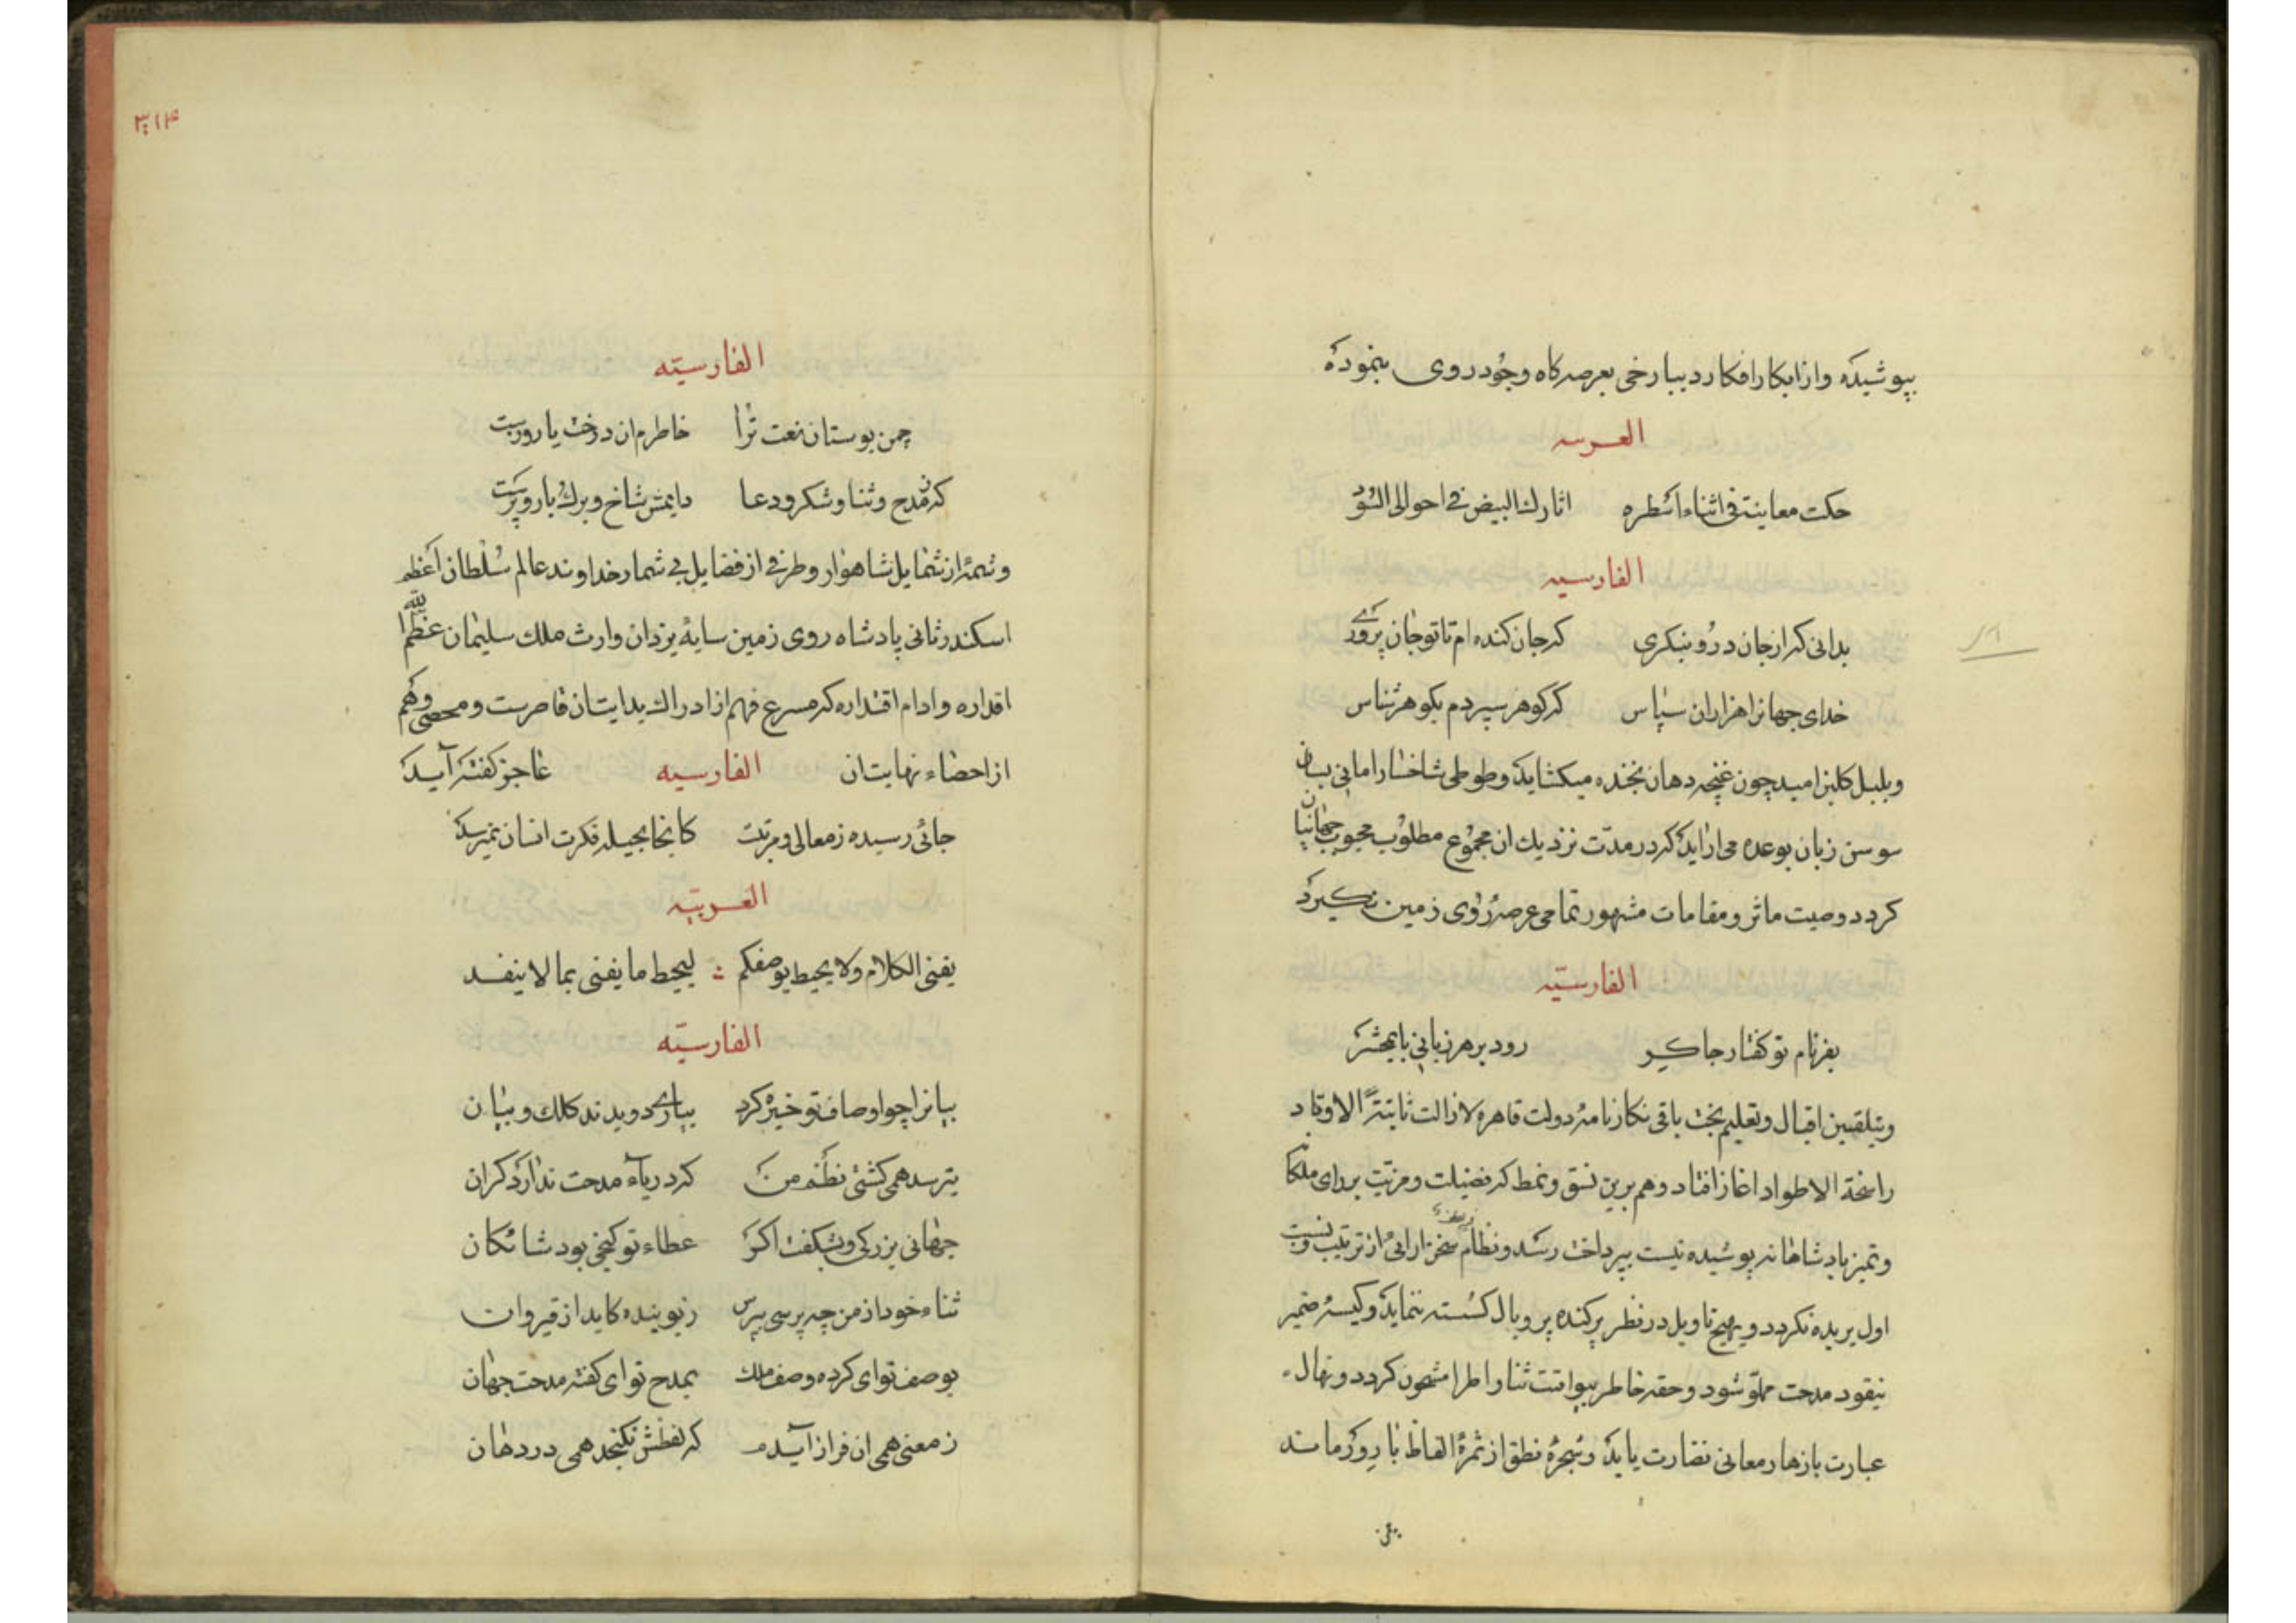 بپوشیده وازابکار افکار دیبا رخی بعرصه کاه وجود روی بنموده
العربیه
حکت معاینة فی اثناء اسطره اثارك البیض فی احوالی السود
الفارسیه
بدانی که از جان درو بنکری که جان کنده ام تا تو جان پروری
خدای جهانرا هزاران سپاس که کوهر سپردم بکوهر شناس
وبلبل کلبن امید چون غنچه دهان بخنده میکشاید وطوطی شاخسار امانی بسان
سوسن زبان بوعده می اراید که در مدت نزدیك ان مجموع مطلوب محبوب جهانیان
کردد وصیت ماثر ومقامات مشهور تمامی عرصه روی زمین بکیرد
الفارسیّه
بفر نام تو کفتار چاکر رود بر هر زبانی تا بمحشر
وبتلقین اقبال وتعلیم بخت باقی نکارنامه دولت قاهره لا زالت ثابتة الاوتاد
راسخة الاطواد اغاز افتاد وهم برین نسق ونمط که فضیلت ومزیّت بر رای ملکانه
وتمیز پادشاهانه پوشیده نیست بپرداخت رسد ونظام سخن ارائی از ترتیب ونسبت
اول بریده نکردد وبهیچ تاویل در نظر پرکنده پر وبال کسسته ننماید وکیسه ضمیر
بنقود مدحت مملوّ شود وحقه خاطر بیواقیت ثنا واطرا مشحون کردد ونهال
عبارت بازهار معانی نضارت یابد وشجرهٔ نطق از ثمرهٔ الفاظ بارور ماند
۳۱۴
الفارسیّه
چمن بوستان نعت ترا خاطرم ان درخت یارورست
که ز مدح وثنا وشکر ودعا دایمش شاخ وبرك وبار وبرست
وشمهٔ از شمایل شاهوار وطرفی از فضایل بی شمار خداوند عالم سلطان اعظم
اسکندر ثانی پادشاه روی زمین سایهٔ یزدان وارث ملك سلیمان عظّم الله
اقداره وادام اقتداره که مسرع فهم از ادراك بدایتان قاصرست ومحصی وهم
از احصاء نهایتان الفارسیه عاجز کفته آید
جائی رسیده ز معالی ومرتبت کانجا بحیله فکرت انسان نمیرسد
العربیّه
یفنی الکلام ولا یحیط بوصفکم لیحیط ما یفنی بما لا ینفد
الفارسیّه
بیانرا چو اوصاف تو خیره کرد بیاری دویدند کلك وبنان
بترسد همی کشتی نظم من که دریاء مدحت ندارد کران
جهانی بزرکی وبشکفت اکر عطاء تو کنجی بود شائکان
ثناء خود از من چه پرسی بپرس
بوصف تو ای کرده وصف ملك بمدح تو ای کفته مدحت جهان
ز معنی همی ان فراز آیدم که لفظش نکنجد همی در دهان